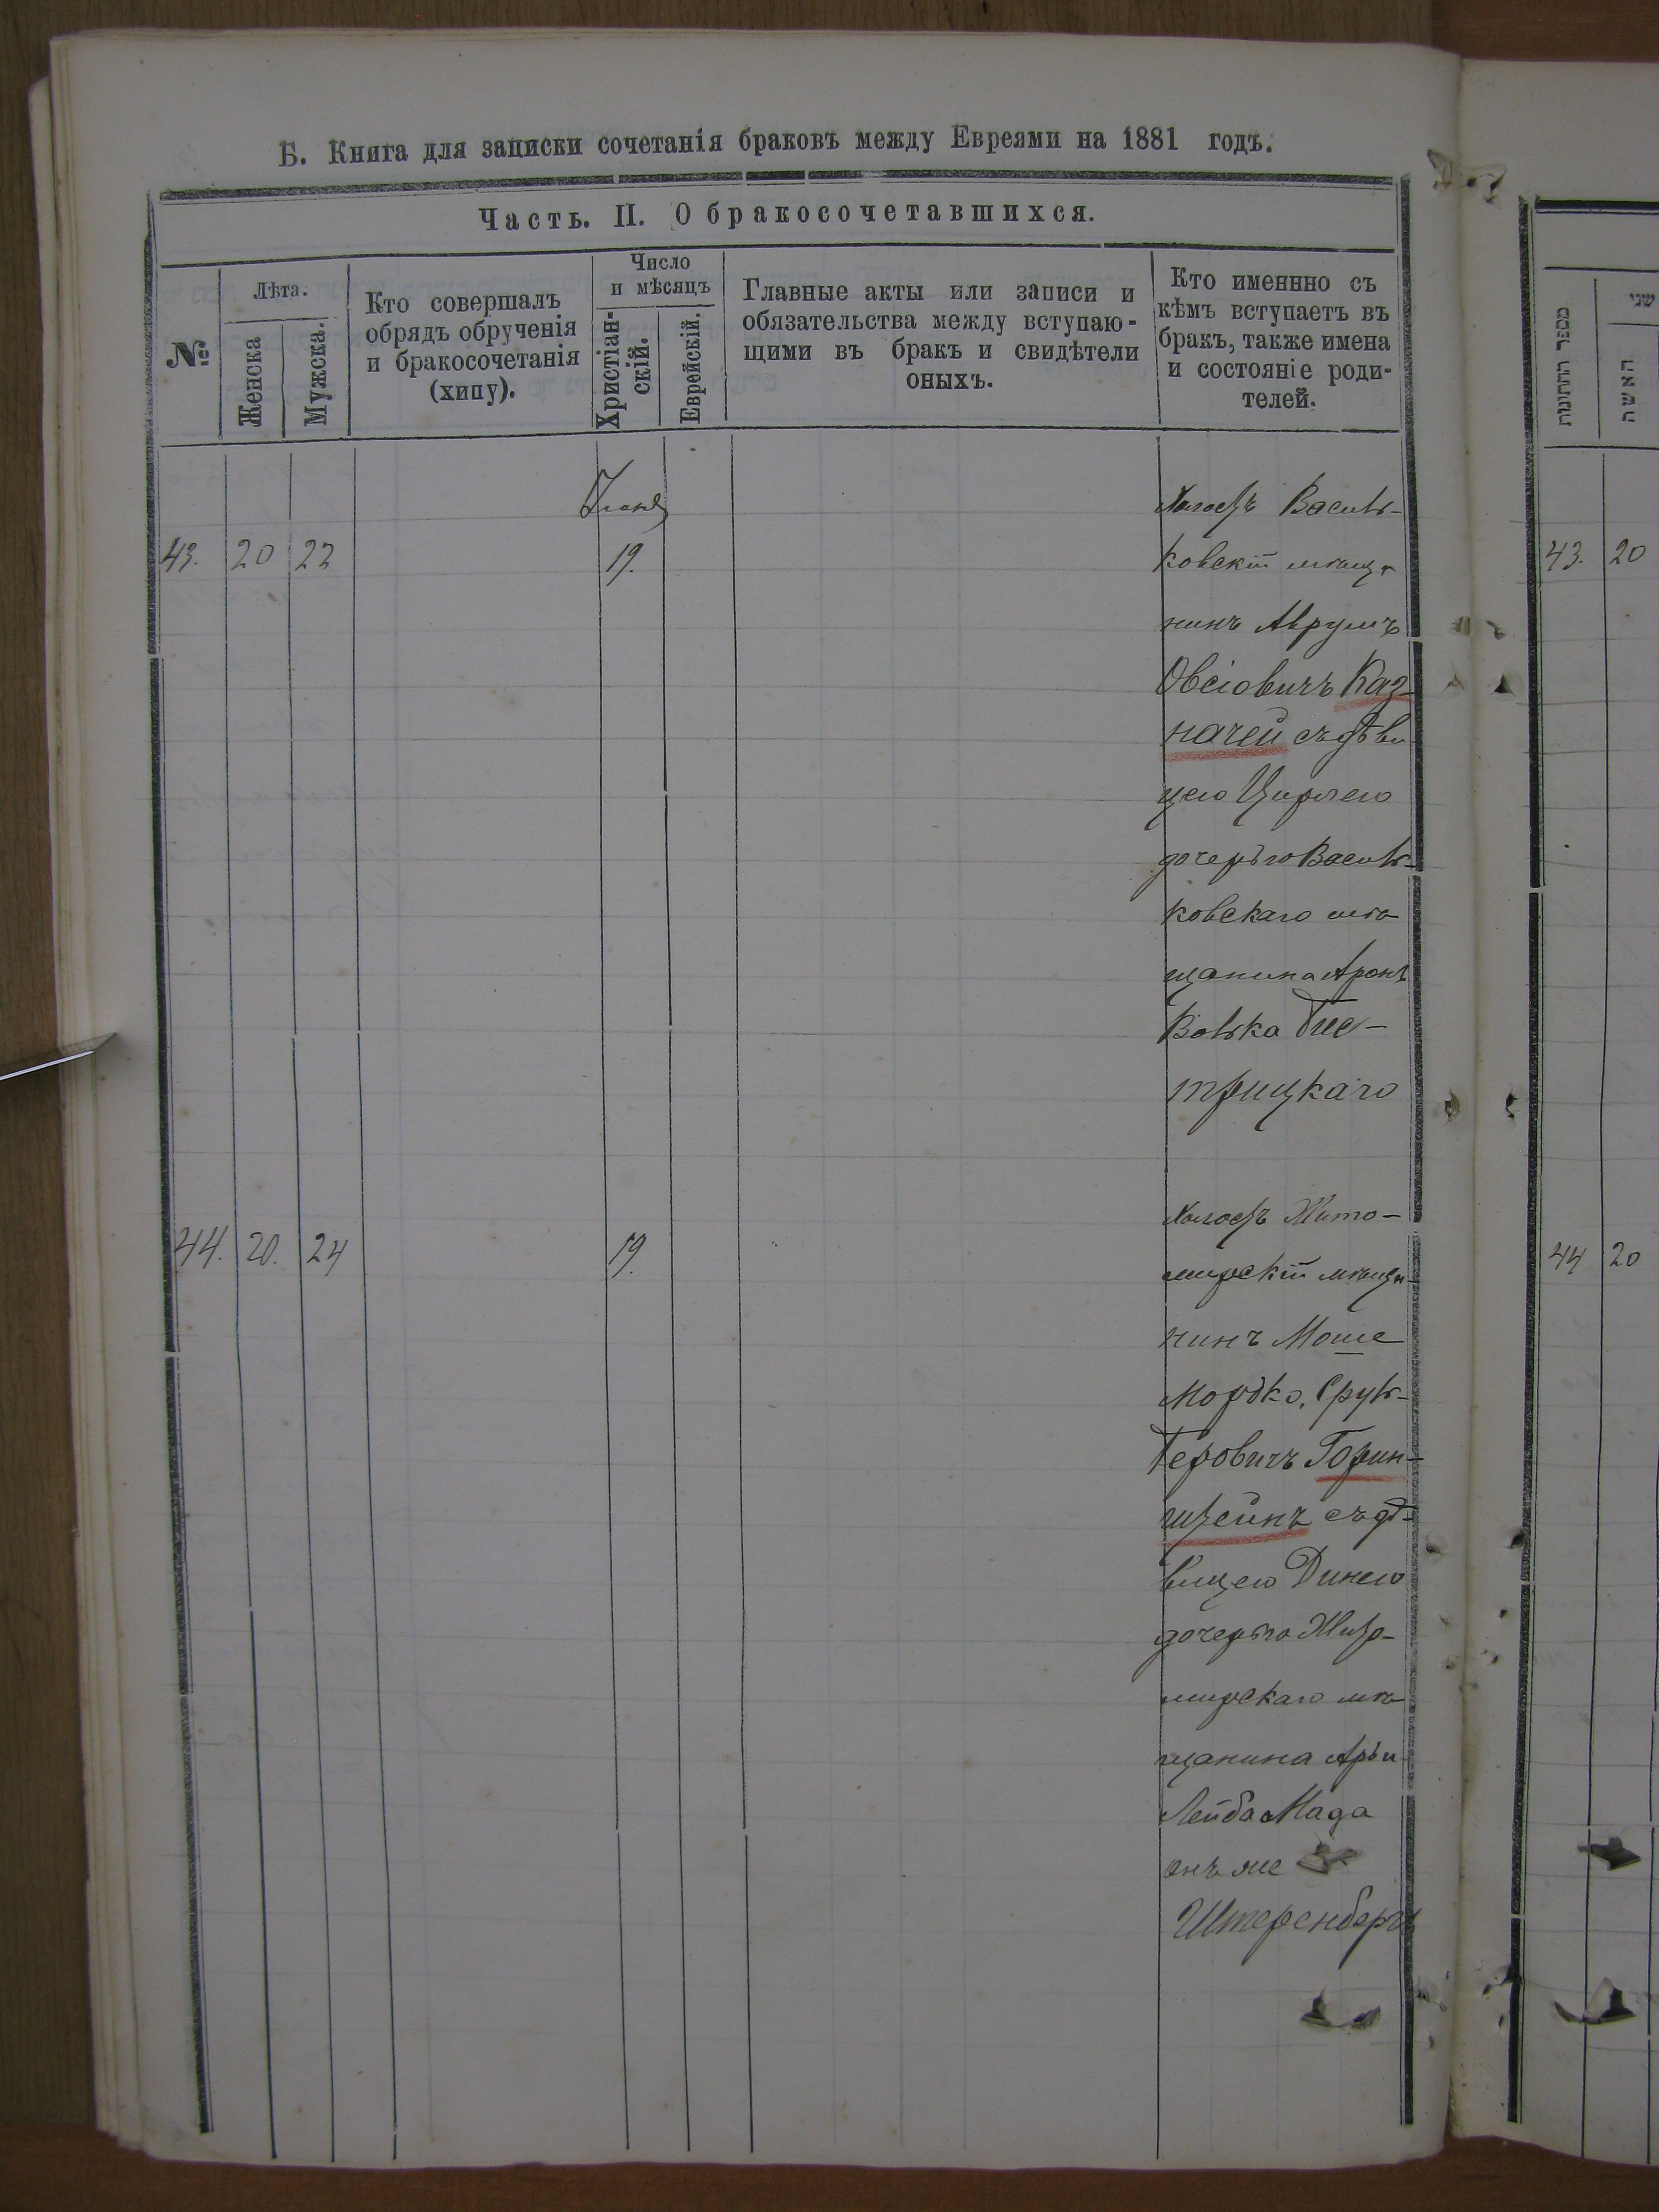 Б. Книга для записки сочетанія браковъ между Евреями на 1881 годъ.
Часть. II. О бракосочетавшихся.
№
Лѣта.
Женска
Мужска.
Кто совершалъ
обрядъ обрученія
и бракосочетанія
(хипу).
Число
и мѣсяцъ
Христіан-
скій.
Еврейскій.
Главные акты или записи и
обязательства между вступаю-
щими въ бракъ и свидѣтели
оныхъ.
Кто именнно съ
кѣмъ вступаетъ въ
бракъ, также имена
и состояніе роди-
телей.
מספר החתונות
שני
האשה
43. 20 22
19.
Холостъ Василь-
ковскій мѣща
нинъ Аврумъ
Овсіовичъ Каз-
начей съ дѣви
цею Цирлею
дочерью Василь-
ковскаго мѣ
щанина Аронъ
Волька Бис-
трицкаго
43. 20
44. 20. 24
19.
Холостъ Жито-
мирскій мѣщи-
нинъ Моше
Мордко, Сруль-
Геровичъ Горин-
штейнъ съ дѣ-
вицею Динею
дочерью Жито-
мирскаго мѣ
щанина Арьи
Лейба
онъ же
Штеренбергъ
44 20